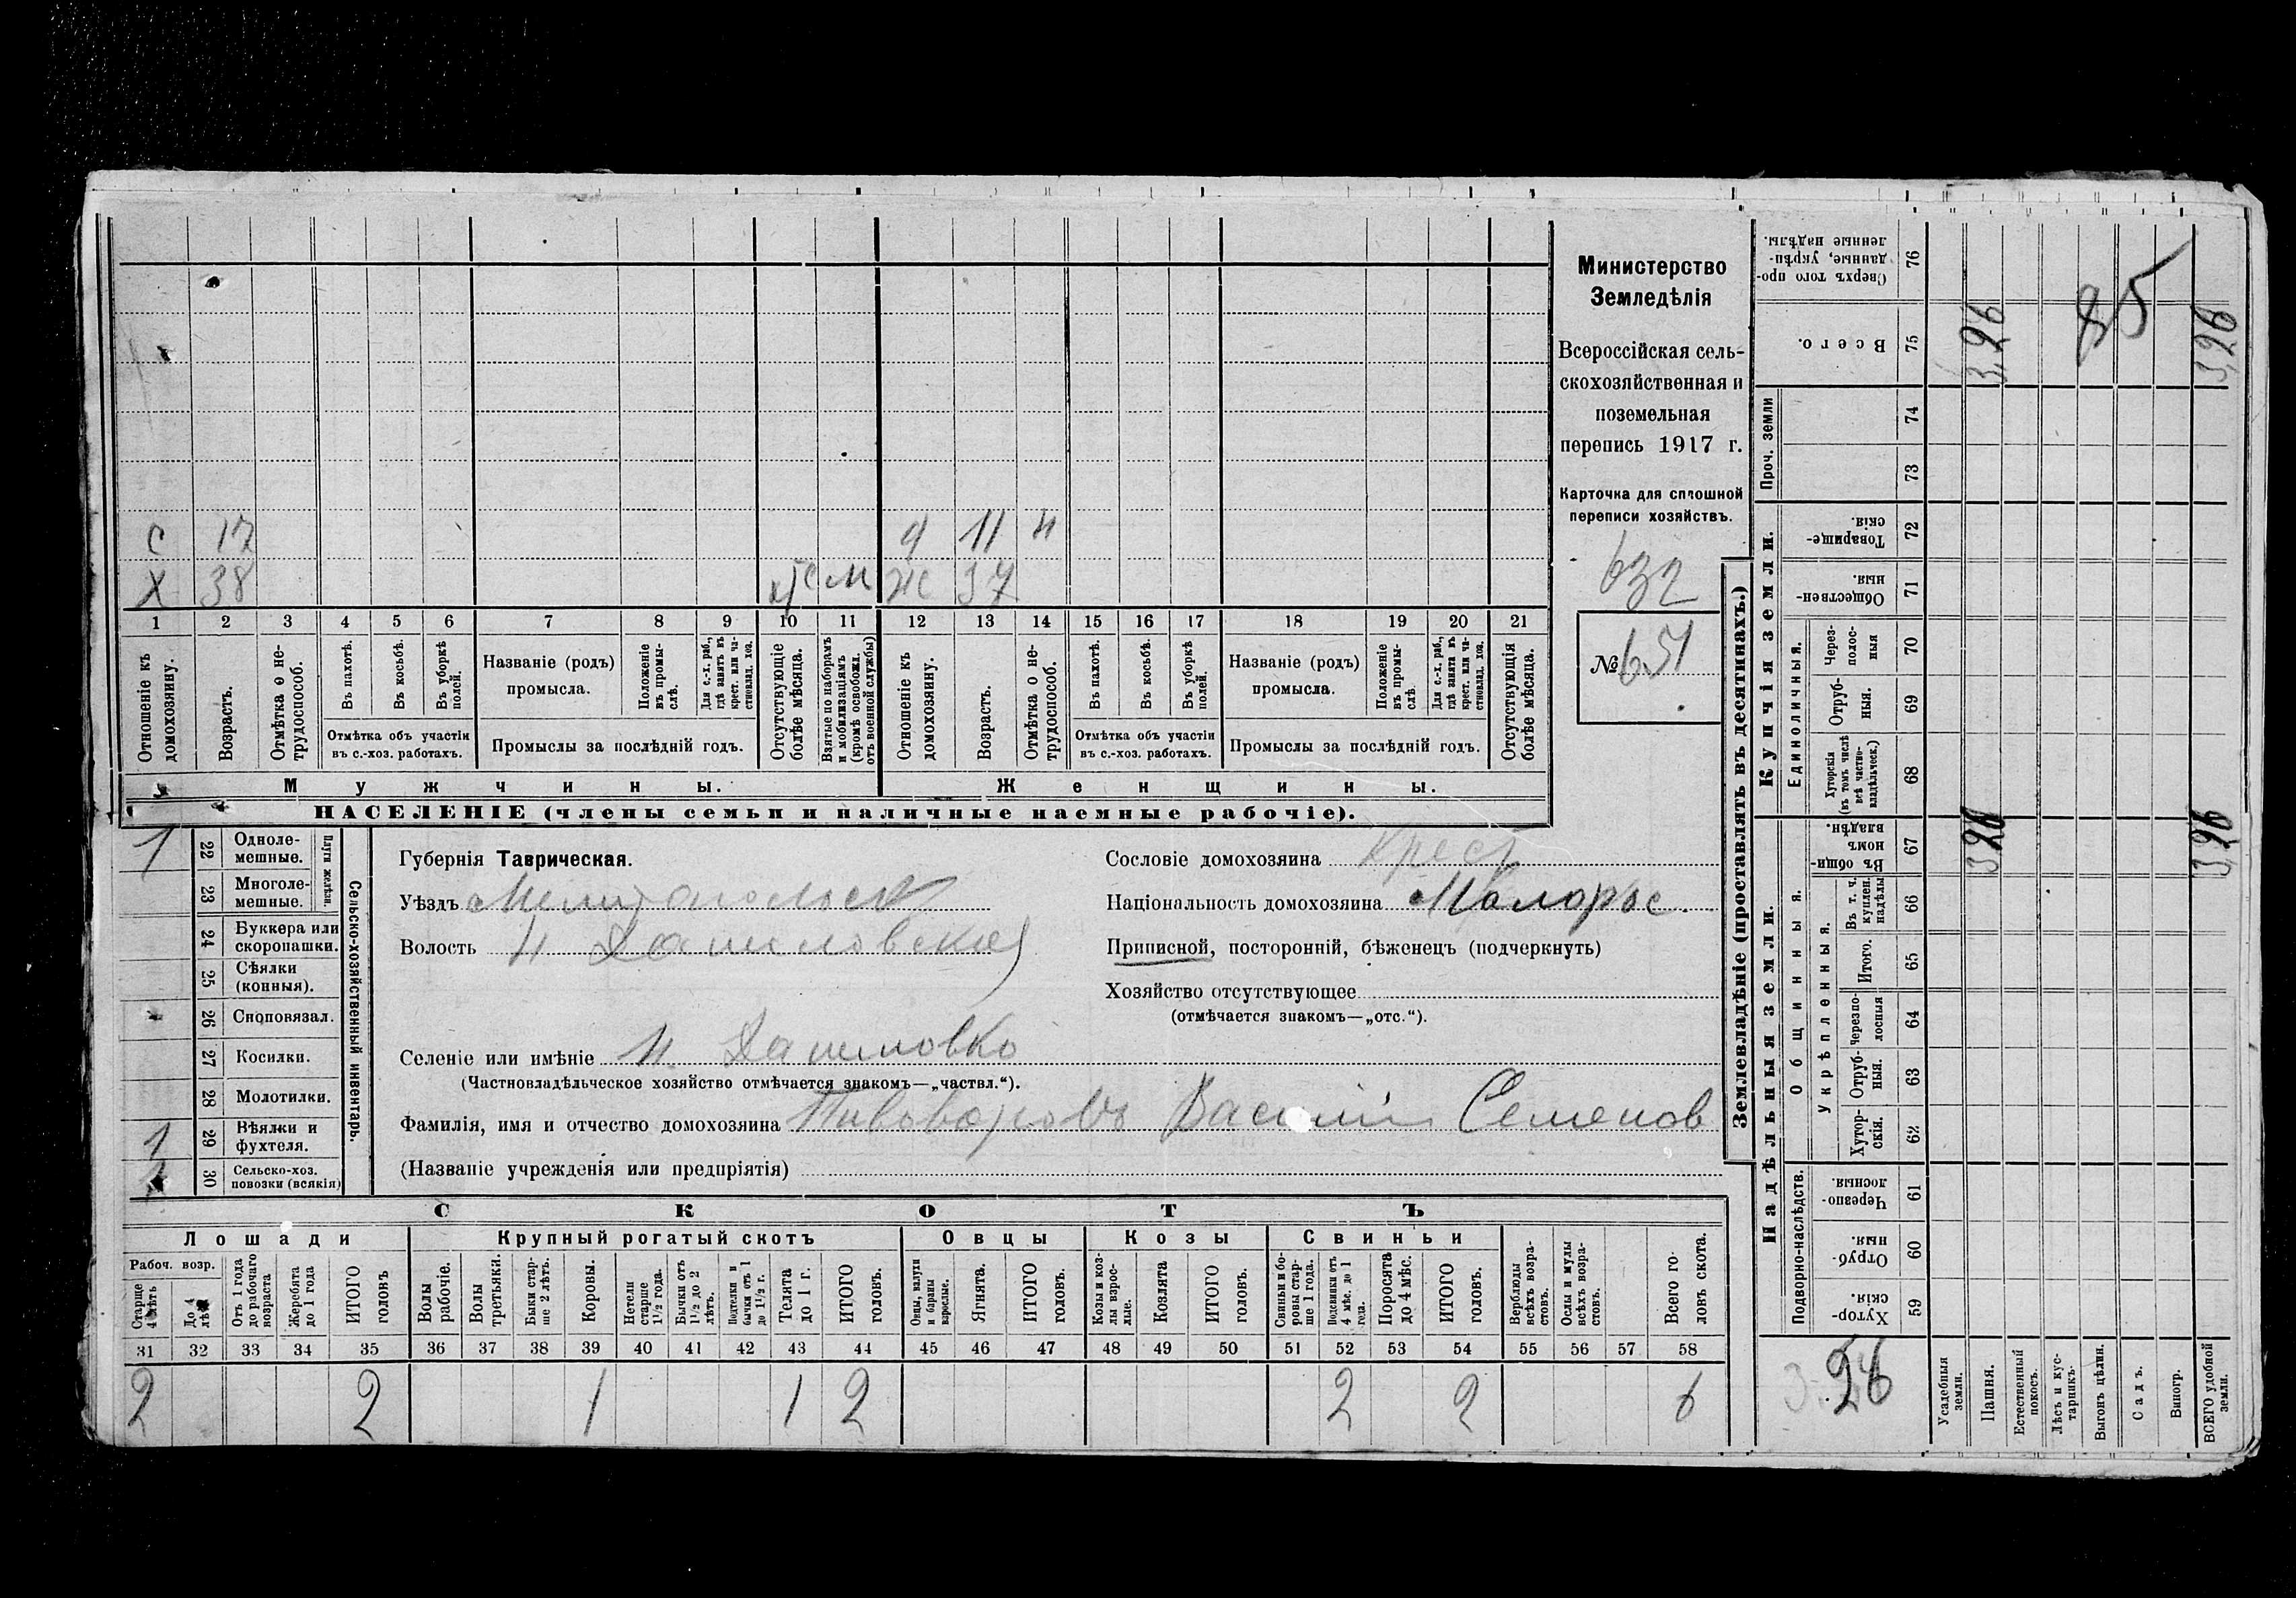 С 17 д 11 н
Х 38 м ж 37
1 2 3 4 5 6 7 8 9 10 11 12 13 14 15 16 17 18 19 20 21
Отношеніе къ домохозяину.
Возрастъ.
Отмѣтка о нетрудоспособ.
Въ пахотѣ.
Въ косьбѣ.
Въ уборкѣ полей.
Отмѣтка объ участіи въ с.-хоз. работахъ.
Названіе (родъ) промысла.
Положеніе въ промыслѣ.
Для с.-х. раб., гдѣ занятъ въ крест. или частновлад. хоз.
Промыслы за послѣдній годъ.
Отсутствующіе болѣе мѣсяца.
Взятые по наборамъ и мобилизаціямъ (кромѣ освобожд. отъ военной службы)
Отношеніе къ домохозяину.
Возрастъ.
Отмѣтка о нетрудоспособ.
Въ пахотѣ.
Въ косьбѣ.
Въ уборкѣ полей.
Отмѣтка объ участіи въ с.-хоз. работахъ.
Названіе (родъ) промысла.
Положеніе въ промыслѣ.
Для с.-х. раб., гдѣ занята въ крест. или частновлад. хоз.
Промыслы за послѣдній годъ.
Отсутствующія болѣе мѣсяца.
Мужчины. Женщины.
НАСЕЛЕНІЕ (члены семьи и наличные наемные рабочіе).
Министерство
Земледѣлія
Всероссійская сель-
скохозяйственная и
поземельная
перепись 1917 г.
Карточка для сплошной
переписи хозяйствъ.
632
№ 651
1 22 Однолемешные.
23 Многолемешные.
Плуги желѣзн.
24 Буккера или скоропашки.
25 Сѣялки (конныя).
26 Сноповязал.
27 Косилки.
28 Молотилки.
1 29 Вѣялки и фухтеля.
1 30 Сельско-хоз. повозки (всякія)
Сельско-хозяйственный инвентарь.
Губернія Таврическая.
Уѣздъ Мелитопольск
Волость Н Даниловская
Селеніе или имѣніе Н. Даниловко
(Частновладѣльческое хозяйство отмѣчается знакомъ—„частвл.“).
Фамилія, имя и отчество домохозяина Пивоваровъ Василій Семенов
(Названіе учрежденія или предпріятія)
Сословіе домохозяина Крест
Національность домохозяина Малорос.
Приписной, посторонній, бѣженецъ (подчеркнуть)
Хозяйство отсутствующее
(отмѣчается знакомъ—„отс.“).
СКОТЪ
Лошади Крупный рогатый скотъ Овцы Козы Свиньи
Рабоч. возр.
Старше 4 лѣтъ
До 4 лѣтъ
Отъ 1 года до рабочаго возраста
Жеребята до 1 года
ИТОГО головъ
Волы рабочіе.
Волы третьяки.
Быки старше 2 лѣтъ.
Коровы.
Нетели старше 1½ года.
Бычки отъ 1½ до 2 лѣтъ.
Подтелки и бычки отъ 1 до 1½ г.
Телята до 1 г.
ИТОГО головъ.
Овцы, валухи и бараны взрослые.
Ягнята.
ИТОГО головъ.
Козы и козлы взрослые.
Козлята
ИТОГО головъ.
Свиньи и боровы старше 1 года.
Подсвинки отъ 4 мѣс. до 1 года.
Поросята до 4 мѣс.
ИТОГО головъ.
Верблюды всѣхъ возрастовъ.
Ослы и мулы всѣхъ возрастовъ.
Всего головъ скота.
31 32 33 34 35 36 37 38 39 40 41 42 43 44 45 46 47 48 49 50 51 52 53 54 55 56 57 58
2 2 1 1 2 2 2 6
Землевладѣніе (проставлять въ десятинахъ.)
Надѣльныя земли. Купчія земли. Проч. земли
Подворно-наслѣдств. Общинныя. Укрѣпленныя. Единоличныя.
Хуторскія 59
Отрубныя. 60
Черезполосныя. 61
Хуторскія. 62
Отрубныя. 63
Черезполосныя 64
Итого. 65
Въ т. ч. куплен. надѣлы 66
Въ общинномъ владѣн. 67
Хуторскія (въ томъ числѣ всѣ частновладѣльческ.) 68
Отрубныя. 69
Черезполосныя 70
Общественныя. 71
Товарищескія. 72
73
74
Всего. 75
Сверхъ того проданные, укрѣпленные надѣлы. 76
3,26
85
3,26
3,26
3,26
3.26
Усадебныя земли.
Пашня.
Естественный покосъ.
Лѣсъ и кустарникъ.
Выгонъ цѣлин.
Садъ.
Виногр.
ВСЕГО удобной земли.